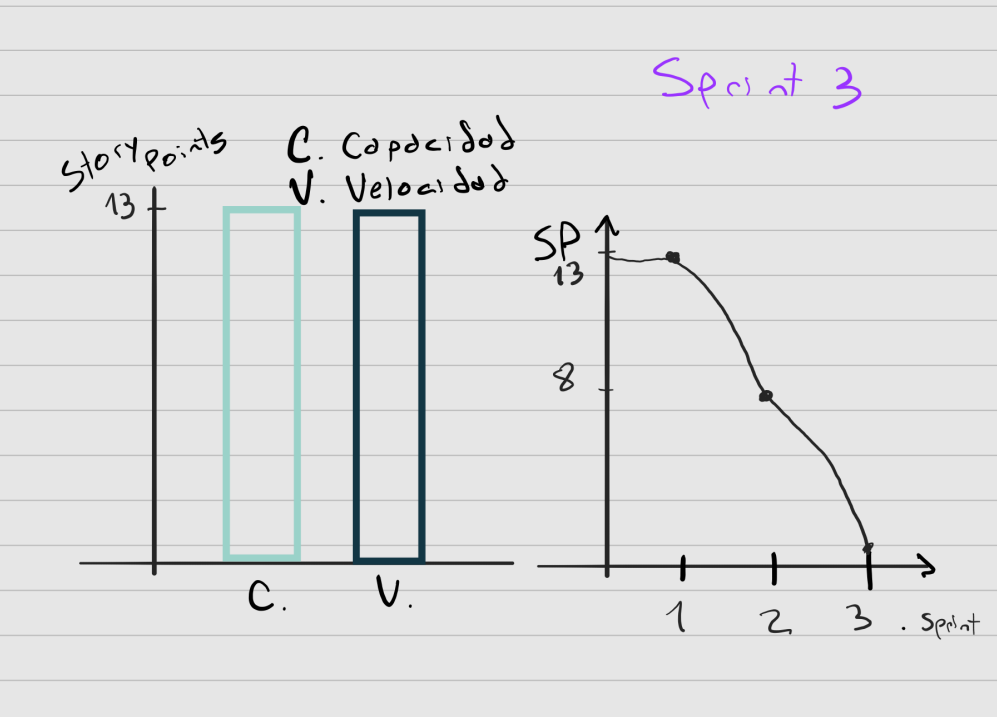 Sprint 3
Story points
C. Capacidad
V. Velocidad
13
C. V.
SP
13
8
1 2 3 . Sprint